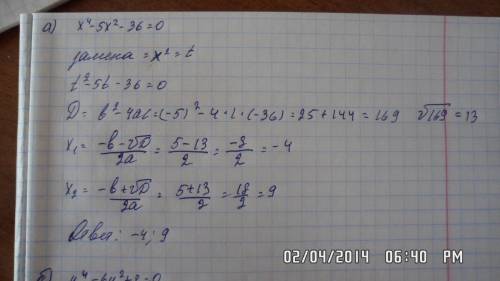 а) x⁴-5x²-36=0
замена = x² = t
t²-5t-36=0
D= b²-4ac=(-5)²-4·1·(-36)=25+144=169 √169=13
x₁= (-b-√D)/2a = (5-13)/2 = -8/2 = -4
x₂= (-b+√D)/2a = (5+13)/2 = 18/2 = 9
Ответ: -4; 9
02/04/2014 06:40 PM